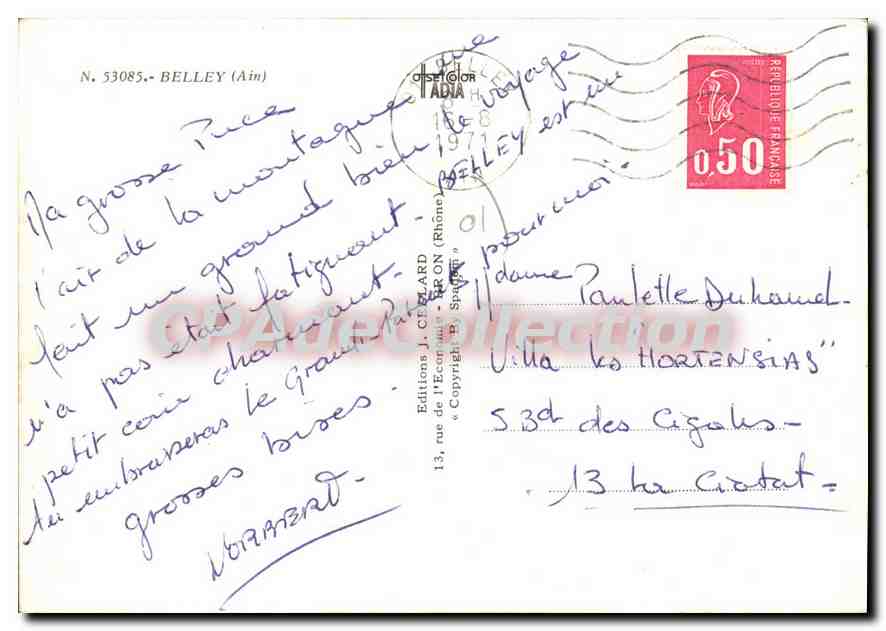 N. 53085.- BELLEY (Ain)
OFFSET COLOR
IRIS
ADIA
BELLEY
16-8
1971
RÉPUBLIQUE FRANÇAISE
POSTES
0,50
Ma grosse Puce
l'air de la montagne que
fait un grand bien, le voyage
n'a pas était fatiguant. BELLEY est un
petit coin charmant.
tu embrasseras le Grand Patrick pour moi.
grosses bises.
NORBERT.
01
Editions J. CELLARD
13, rue de l'Economie - BRON (Rhône)
« Copyright By Spadem »
Madame Paulette Duhamel
Villa les "HORTENSIAS"
5 Bd des Cigales
13 La Ciotat
CPAdeCollection